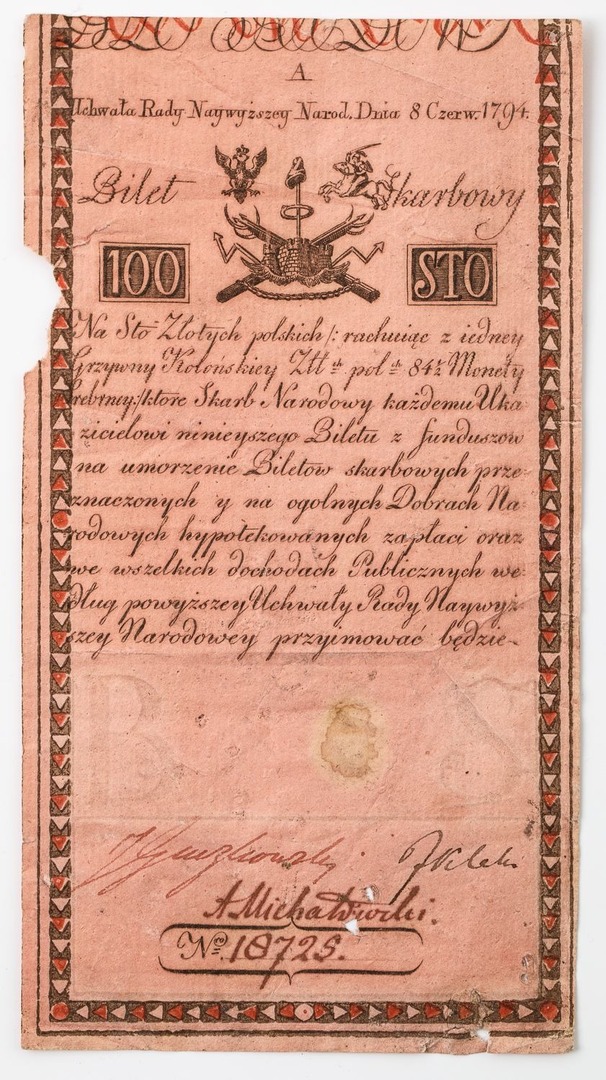 A
Uchwała Rady Naywyższey Narod. Dnia 8 Czerw. 1794.
Bilet Skarbowy
100 STO
Na Sto Złotych polskich /: rachuiąc z iedney
Grzywny Kolońskiey Złł ch pol ch 84½ Monety
srebrney:/ktore Skarb Narodowy każdemu Uka
zicielowi ninieyszego Biletu z funduszow
na umorzenie Biletow skarbowych prze-
znaczonych y na ogolnych Dobrach Na-
rodowych hypotekowanych zapłaci oraz
we wszelkich dochodach Publicznych we-
dług powyższey Uchwały Rady Naywyż-
szey Narodowey przyimować będzie-
B S
A. Michałowski.
No. 18725.